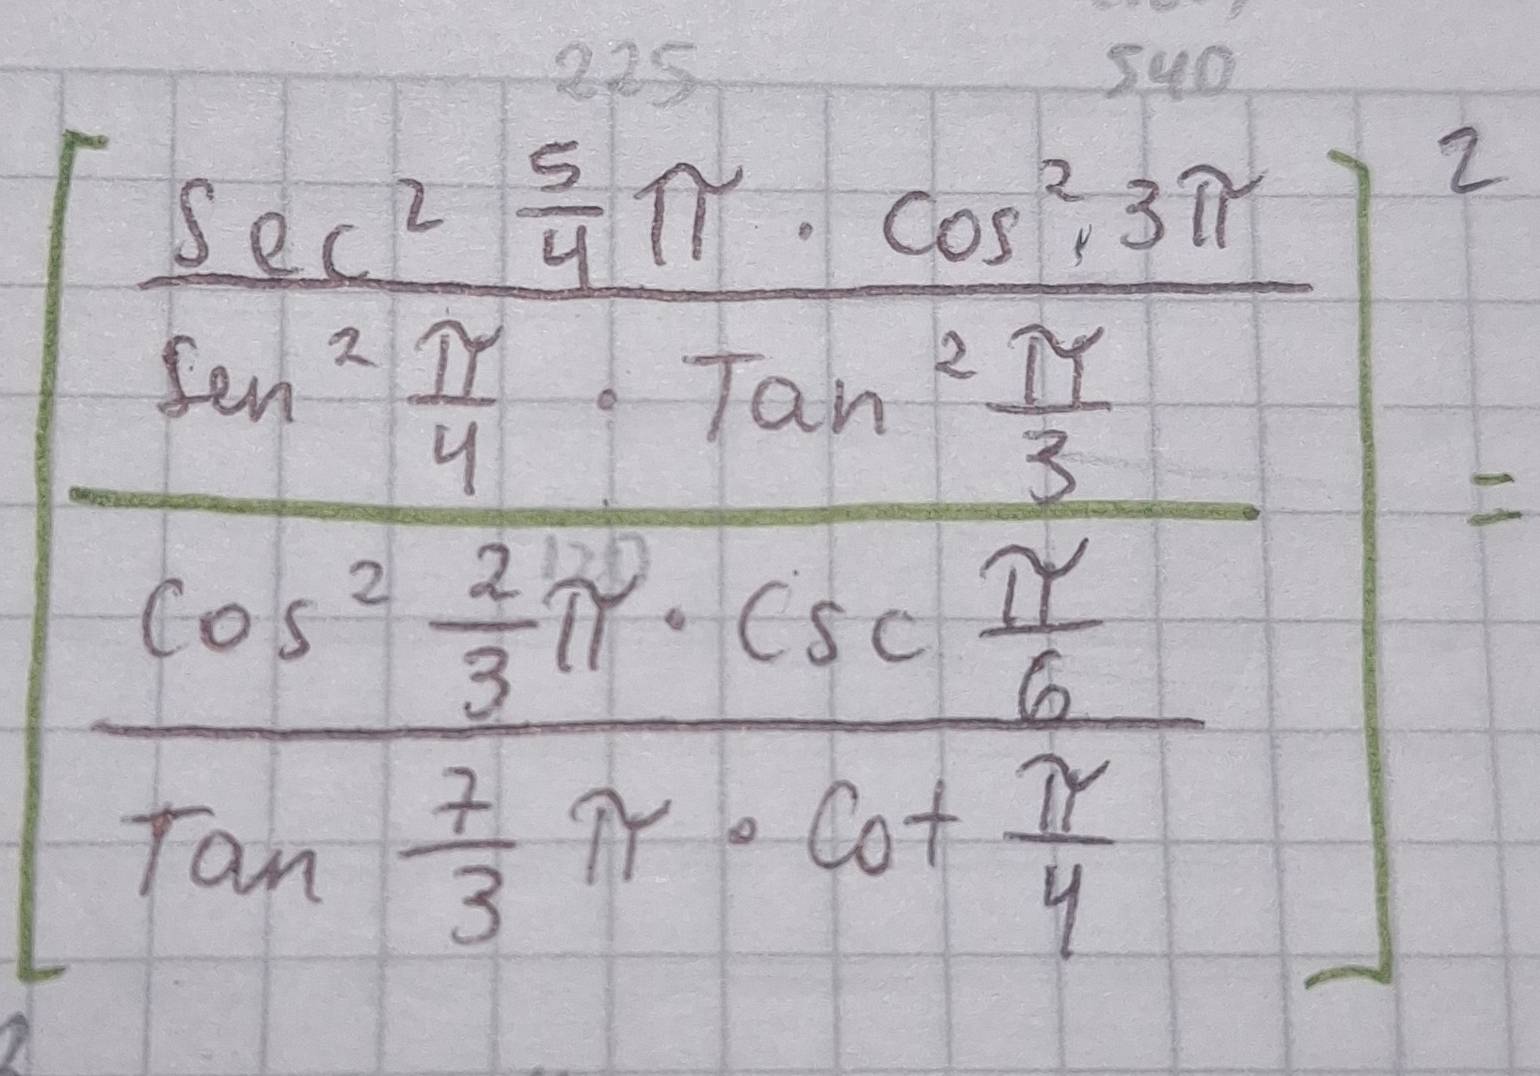 225 540
[ Sec² 5/4 π · Cos² 3π ]²
Sen² π/4 · Tan² π/3
=
120
Cos² 2/3 π · Csc π/6
Tan 7/3 π · Cot π/4